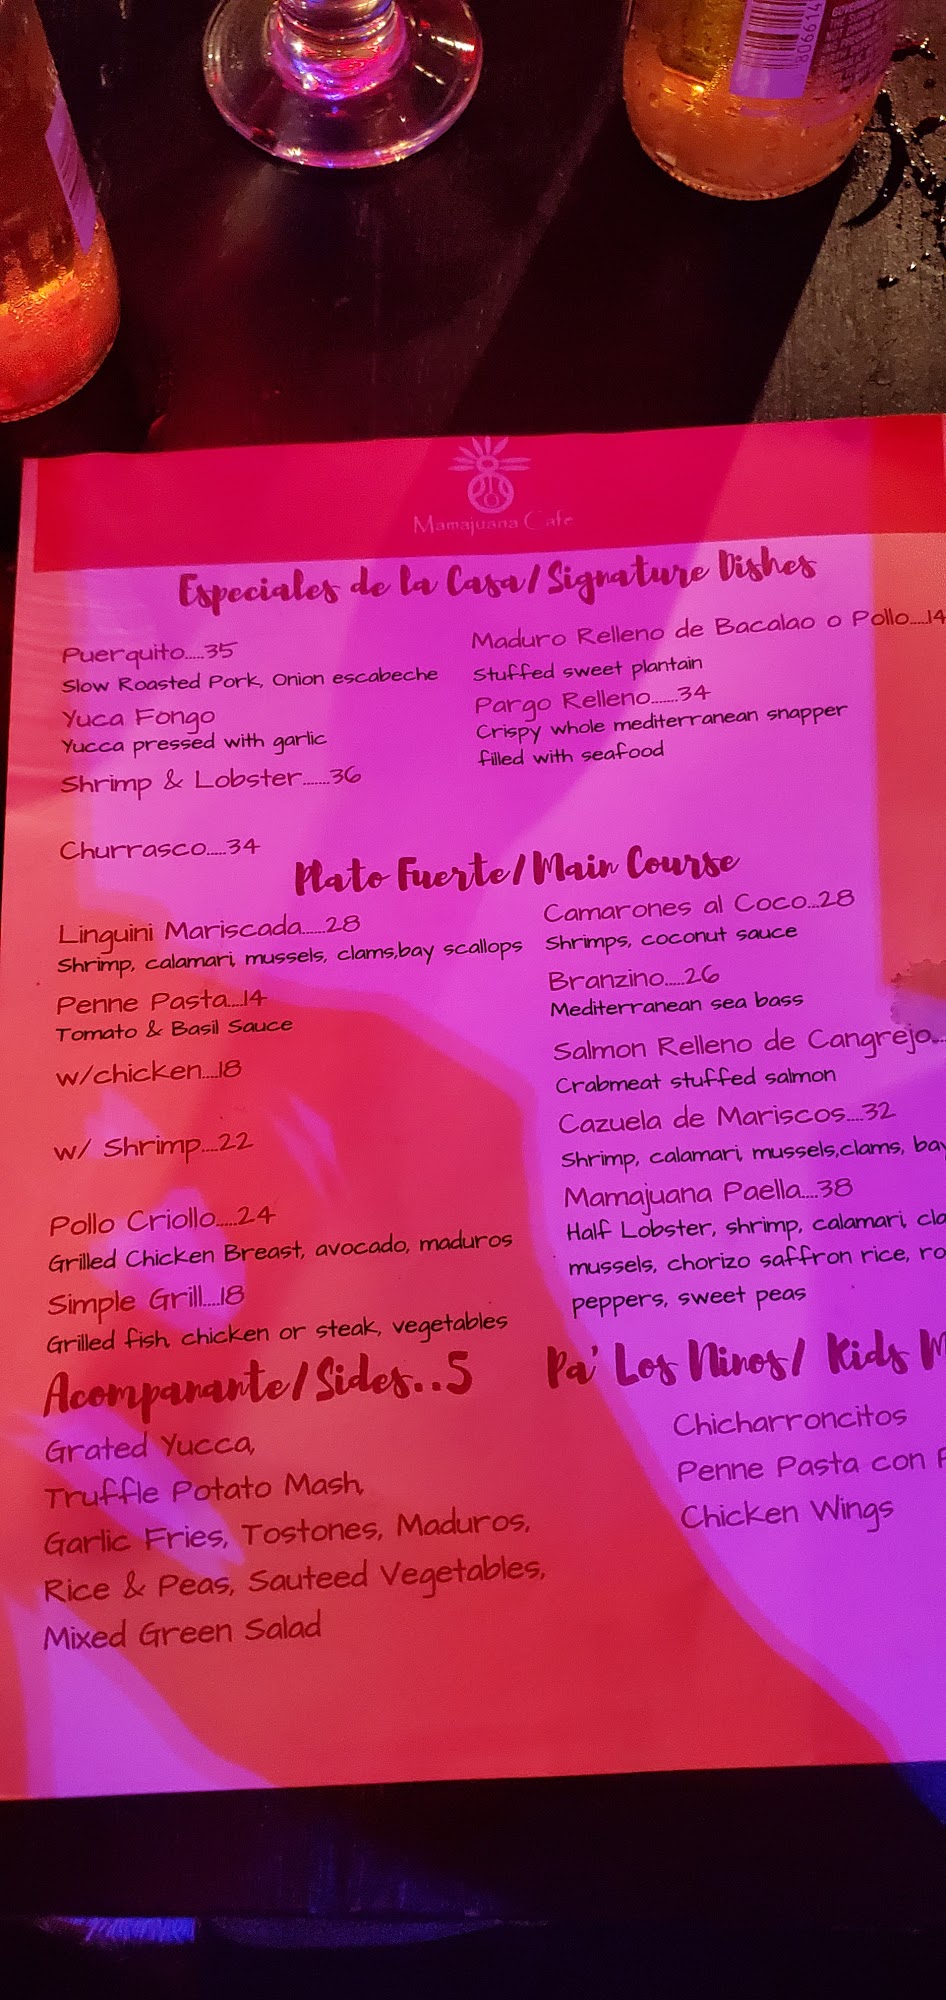 806614
Mamajuana Cafe
Especiales de la Casa/Signature Dishes
Puerquito.....35
Slow Roasted Pork, Onion escabeche
Yuca Fongo
Yucca pressed with garlic
Shrimp & Lobster.......36
Churrasco.....34
Maduro Relleno de Bacalao o Pollo....14
Stuffed sweet plantain
Pargo Relleno.......34
Crispy whole mediterranean snapper
filled with seafood
Plato Fuerte/Main Course
Linguini Mariscada......28
Shrimp, calamari, mussels, clams,bay scallops
Penne Pasta....14
Tomato & Basil Sauce
w/chicken....18
w/ Shrimp....22
Pollo Criollo.....24
Grilled Chicken Breast, avocado, maduros
Simple Grill....18
Grilled fish, chicken or steak, vegetables
Camarones al Coco...28
Shrimps, coconut sauce
Branzino.....26
Mediterranean sea bass
Salmon Relleno de Cangrejo...
Crabmeat stuffed salmon
Cazuela de Mariscos....32
Shrimp, calamari, mussels,clams, bay
Mamajuana Paella....38
Half Lobster, shrimp, calamari,
mussels, chorizo saffron rice,
peppers, sweet peas
Acompanante/Sides..5
Grated Yucca,
Truffle Potato Mash,
Garlic Fries, Tostones, Maduros,
Rice & Peas, Sauteed Vegetables,
Mixed Green Salad
Pa' Los Ninos/ Kids
Chicharroncitos
Penne Pasta con
Chicken Wings